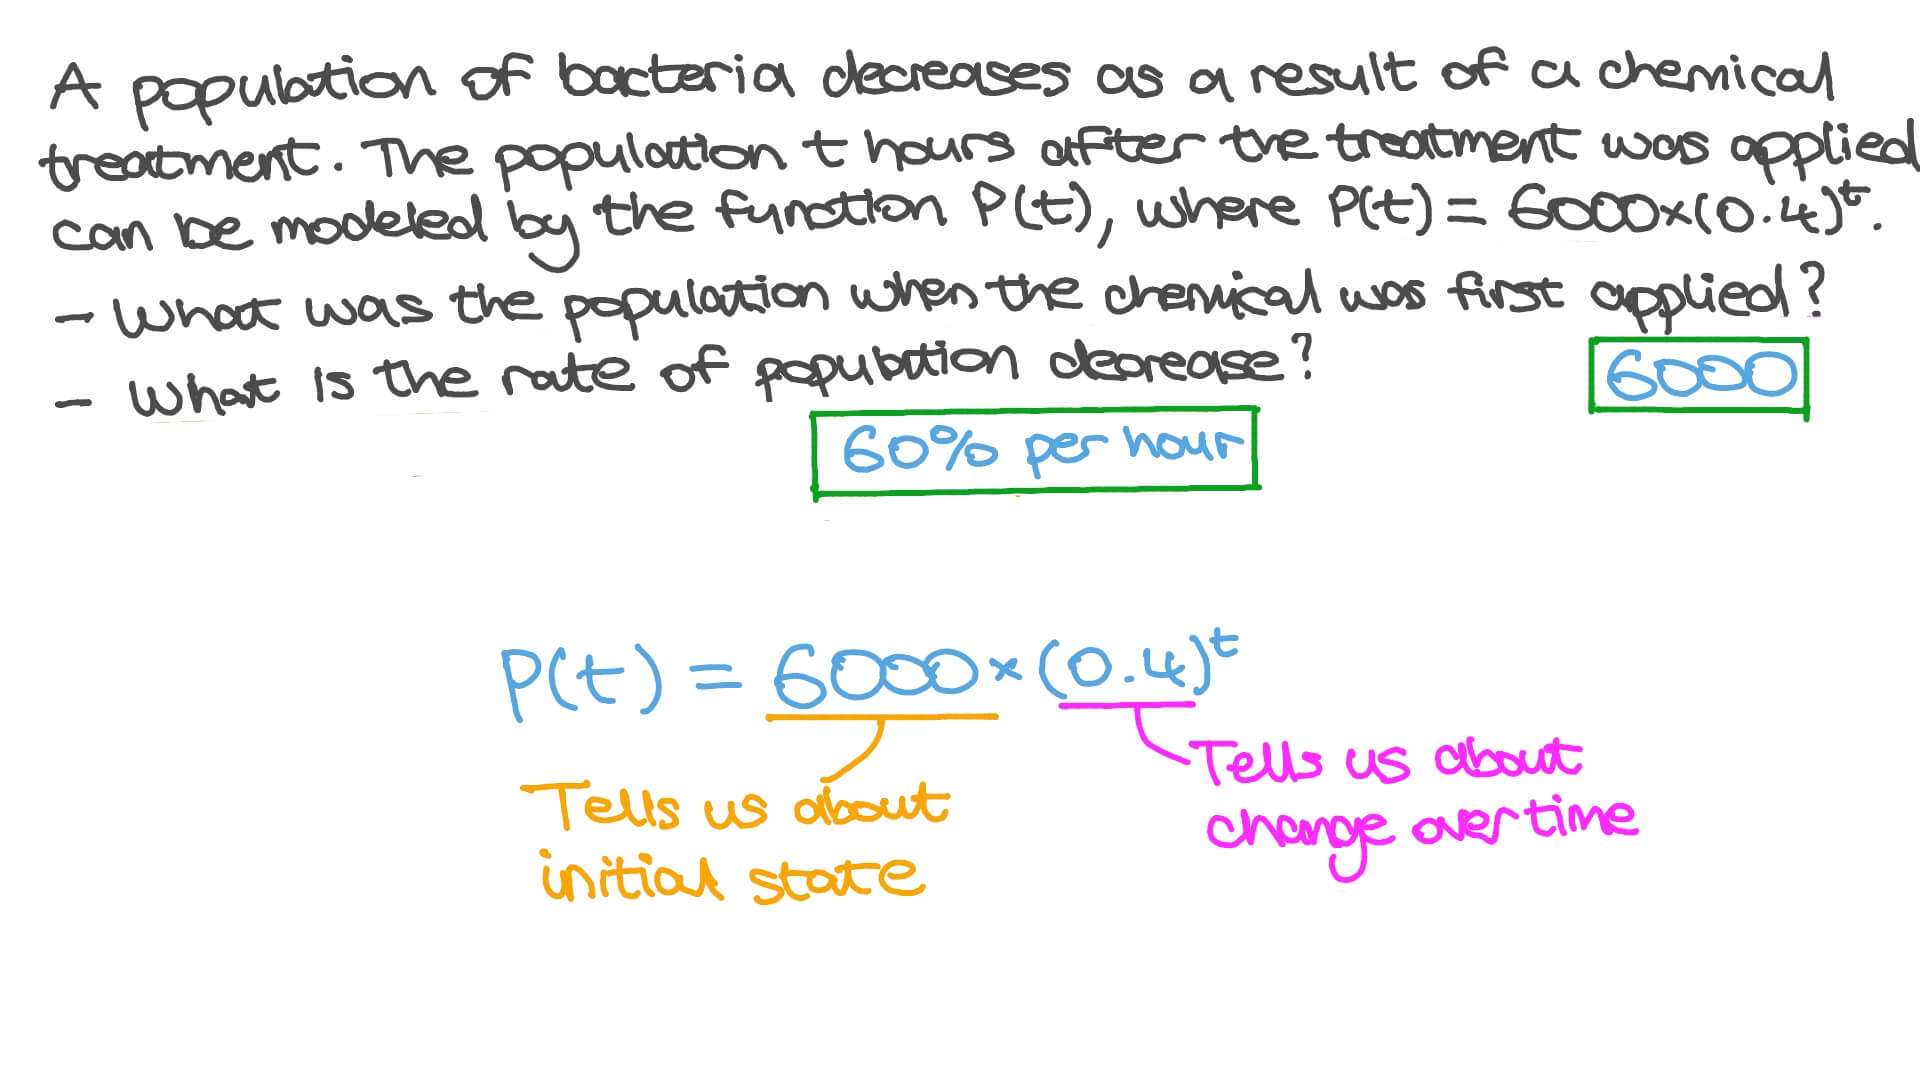 A population of bacteria decreases as a result of a chemical
treatment. The population t hours after the treatment was applied
can be modeled by the function P(t), where P(t) = 6000×(0.4)^t.
- What was the population when the chemical was first applied?
6000
- What is the rate of population decrease?
60% per hour
P(t) = 6000 × (0.4)^t
Tells us about
initial state
Tells us about
change over time